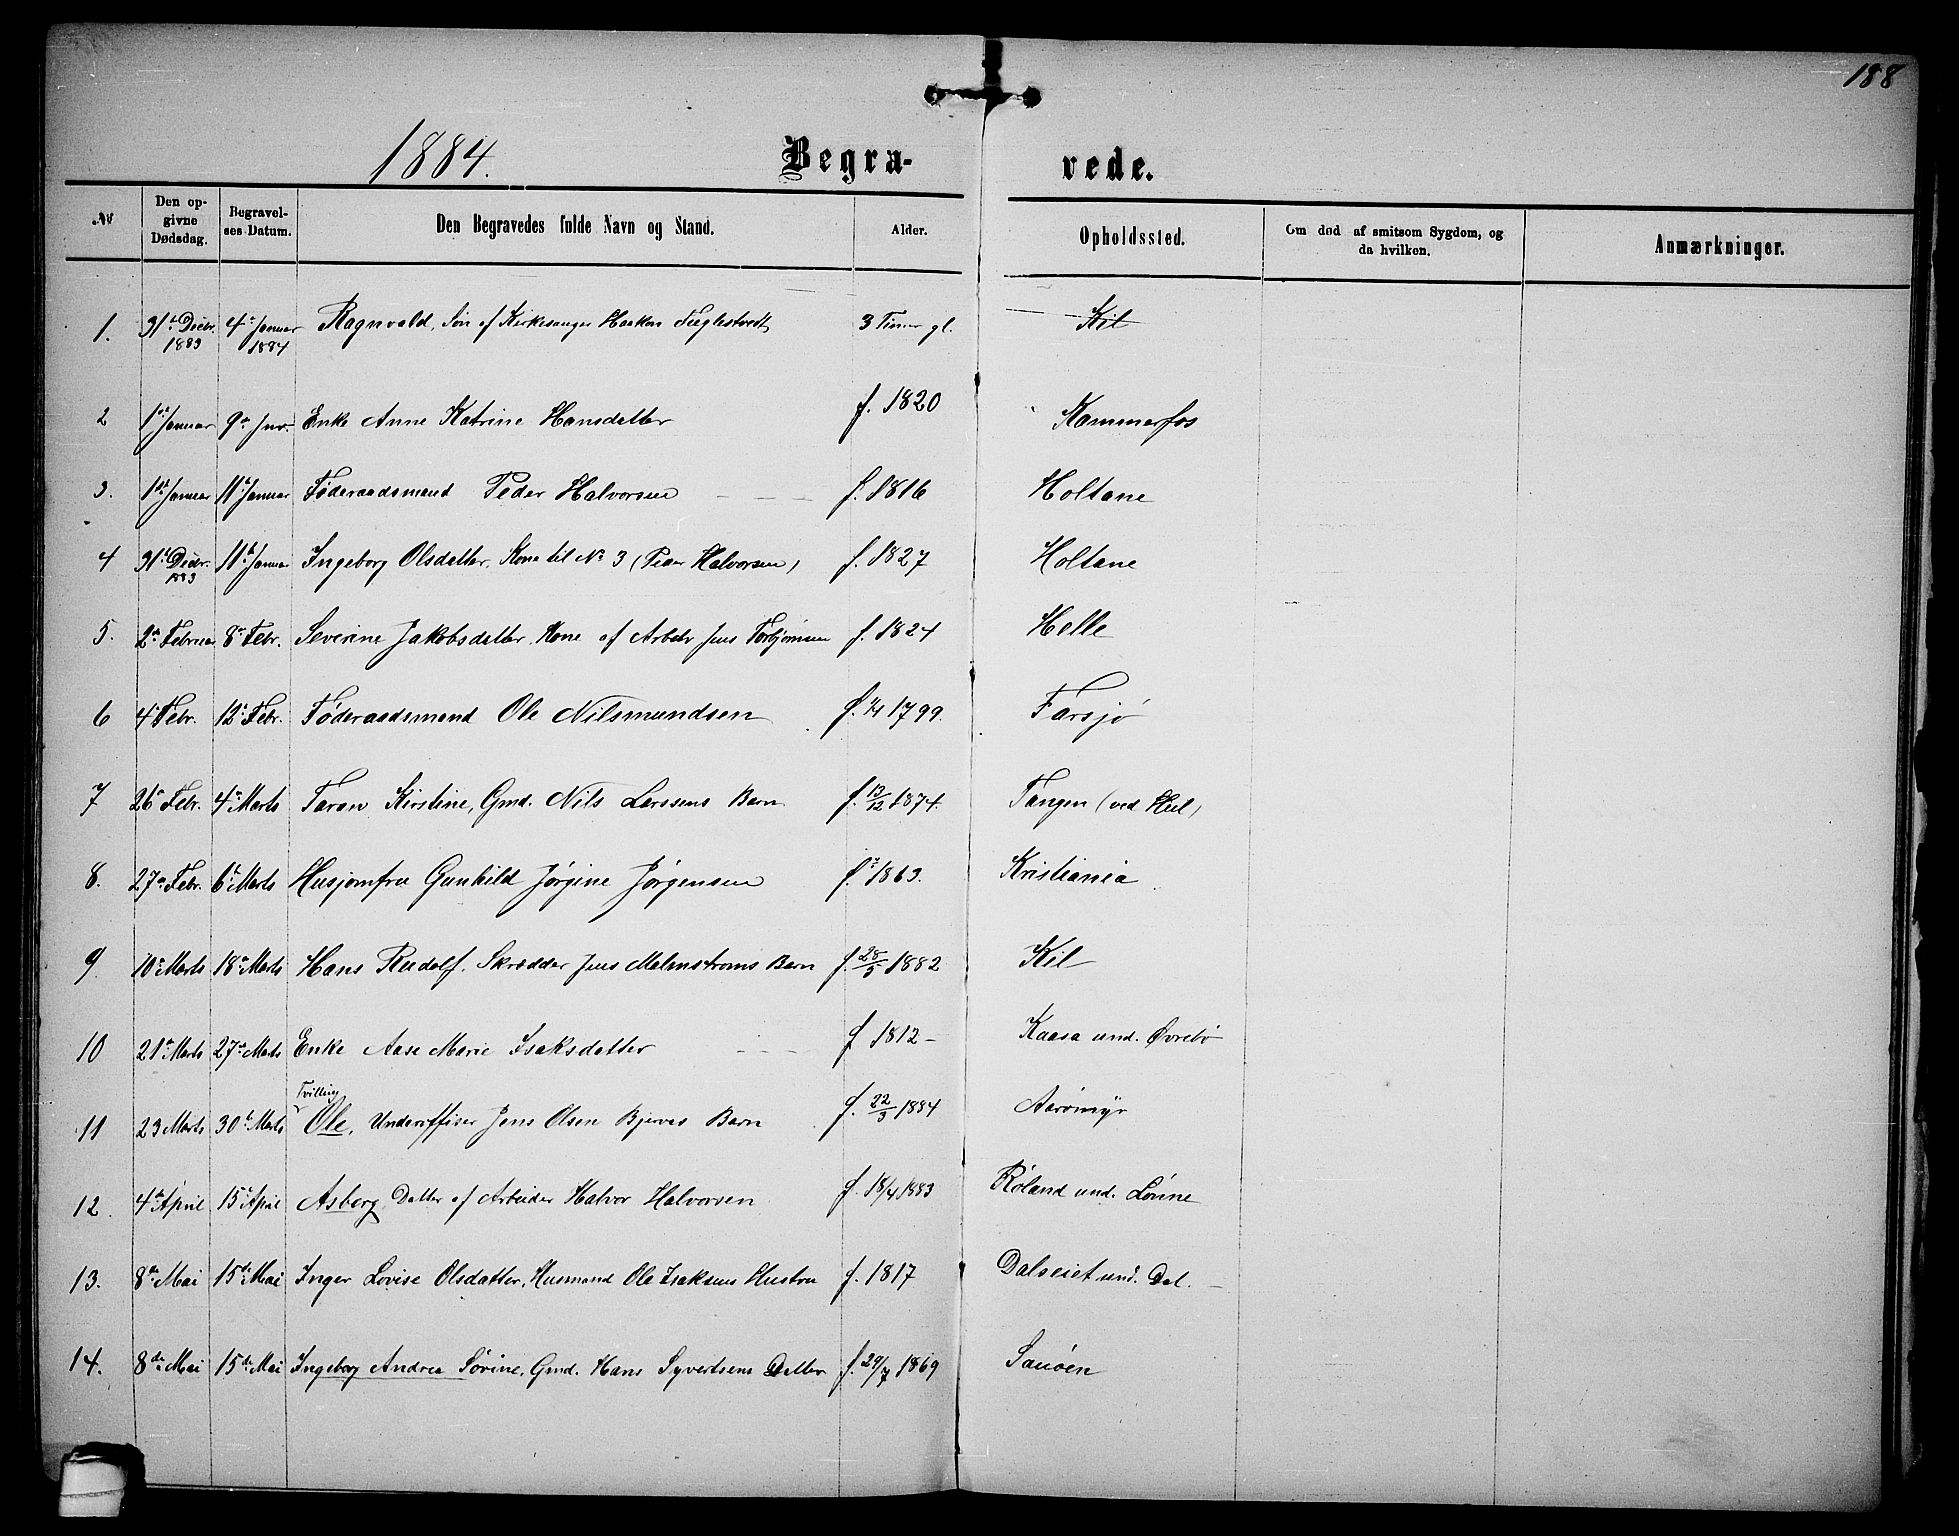 188
1884. Begra- vede.
№ Den op- givne Dødsdag. Begravel- ses-Datum. Den Begravedes fulde Navn og Stand. Alder. Opholdssted. Om død af smitsom Sygdom, og da hvilken. Anmærkninger.
1. 31te Decbr. 1883 4de Januar 1884 Ragnvald, Søn af Kirkesanger Haakon 3 Timer gl. Kil
2 1ste Januar 9de Jnr. Enke Anne Katrine Hansdatter f. 1820 Kammerfos
3. 1ste Januar 11te Januar Føderaadsmand Peder Halvorsen f. 1816 Holtane
4 31te Decbr. 1883 11te Januar Ingeborg Olsdatter, Kone til No 3 (Peder Halvorsen) f. 1827 Holtane
5. 2den Februar 8de Febr. Severine Jakobsdatter, Kone af Arbeidr Jens Torbjørnsen f. 1824 Helle
6 4de Febr. 12te Febr. Føderaadsmand Ole Nilsmundsen f. 1/1 1799. Farsjø
7 26de Febr. 4de Marts Taran Kirstine, Gmd. Nils Larssens Barn f. 13/12 1874. Tangen (ved Kil)
8. 27de Febr. 6te Marts Husjomfru Gunhild Jørgine Jørgensen f. ? 1863. Kristiania
9 10de Marts 18de Marts Hans Rudolf, Skrædder Jens Malmstrøms Barn f. 28/5 1882 Kil
10 21te Marts 27de Marts Enke Aase Marie Isaksdatter f 1812 – Kaasa und. Øvrebø
11 23 Marts 30te Marts Tvilling Ole, Underoffiser Jens Olsen Bjerves Barn f. 22/3 1884 Aarømyr
12. 4de April 15de April Asborg, Datter af Arbeider Halvor Halvorsen f. 18/4 1883 Røland und. Lønne
13. 8de Mai 15de Mai Inger Lovise Olsdatter, Husmand Ole Isaksens Hustru f. 1817 Dalseiet und. Dal.
14. 8de Mai 15de Mai Ingeborg Andrea Sørine, Gmd. Hans Syvertsens Datter f. 29/7 1869 Sauøen